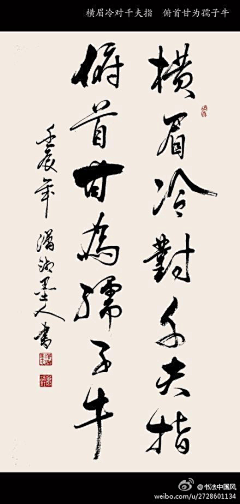 横眉冷对千夫指　俯首甘为孺子牛
橫眉冷對千夫指
俯首甘為孺子牛
壬辰年 瀟湘墨人書
@书法中国风
weibo.com/u/2728601134